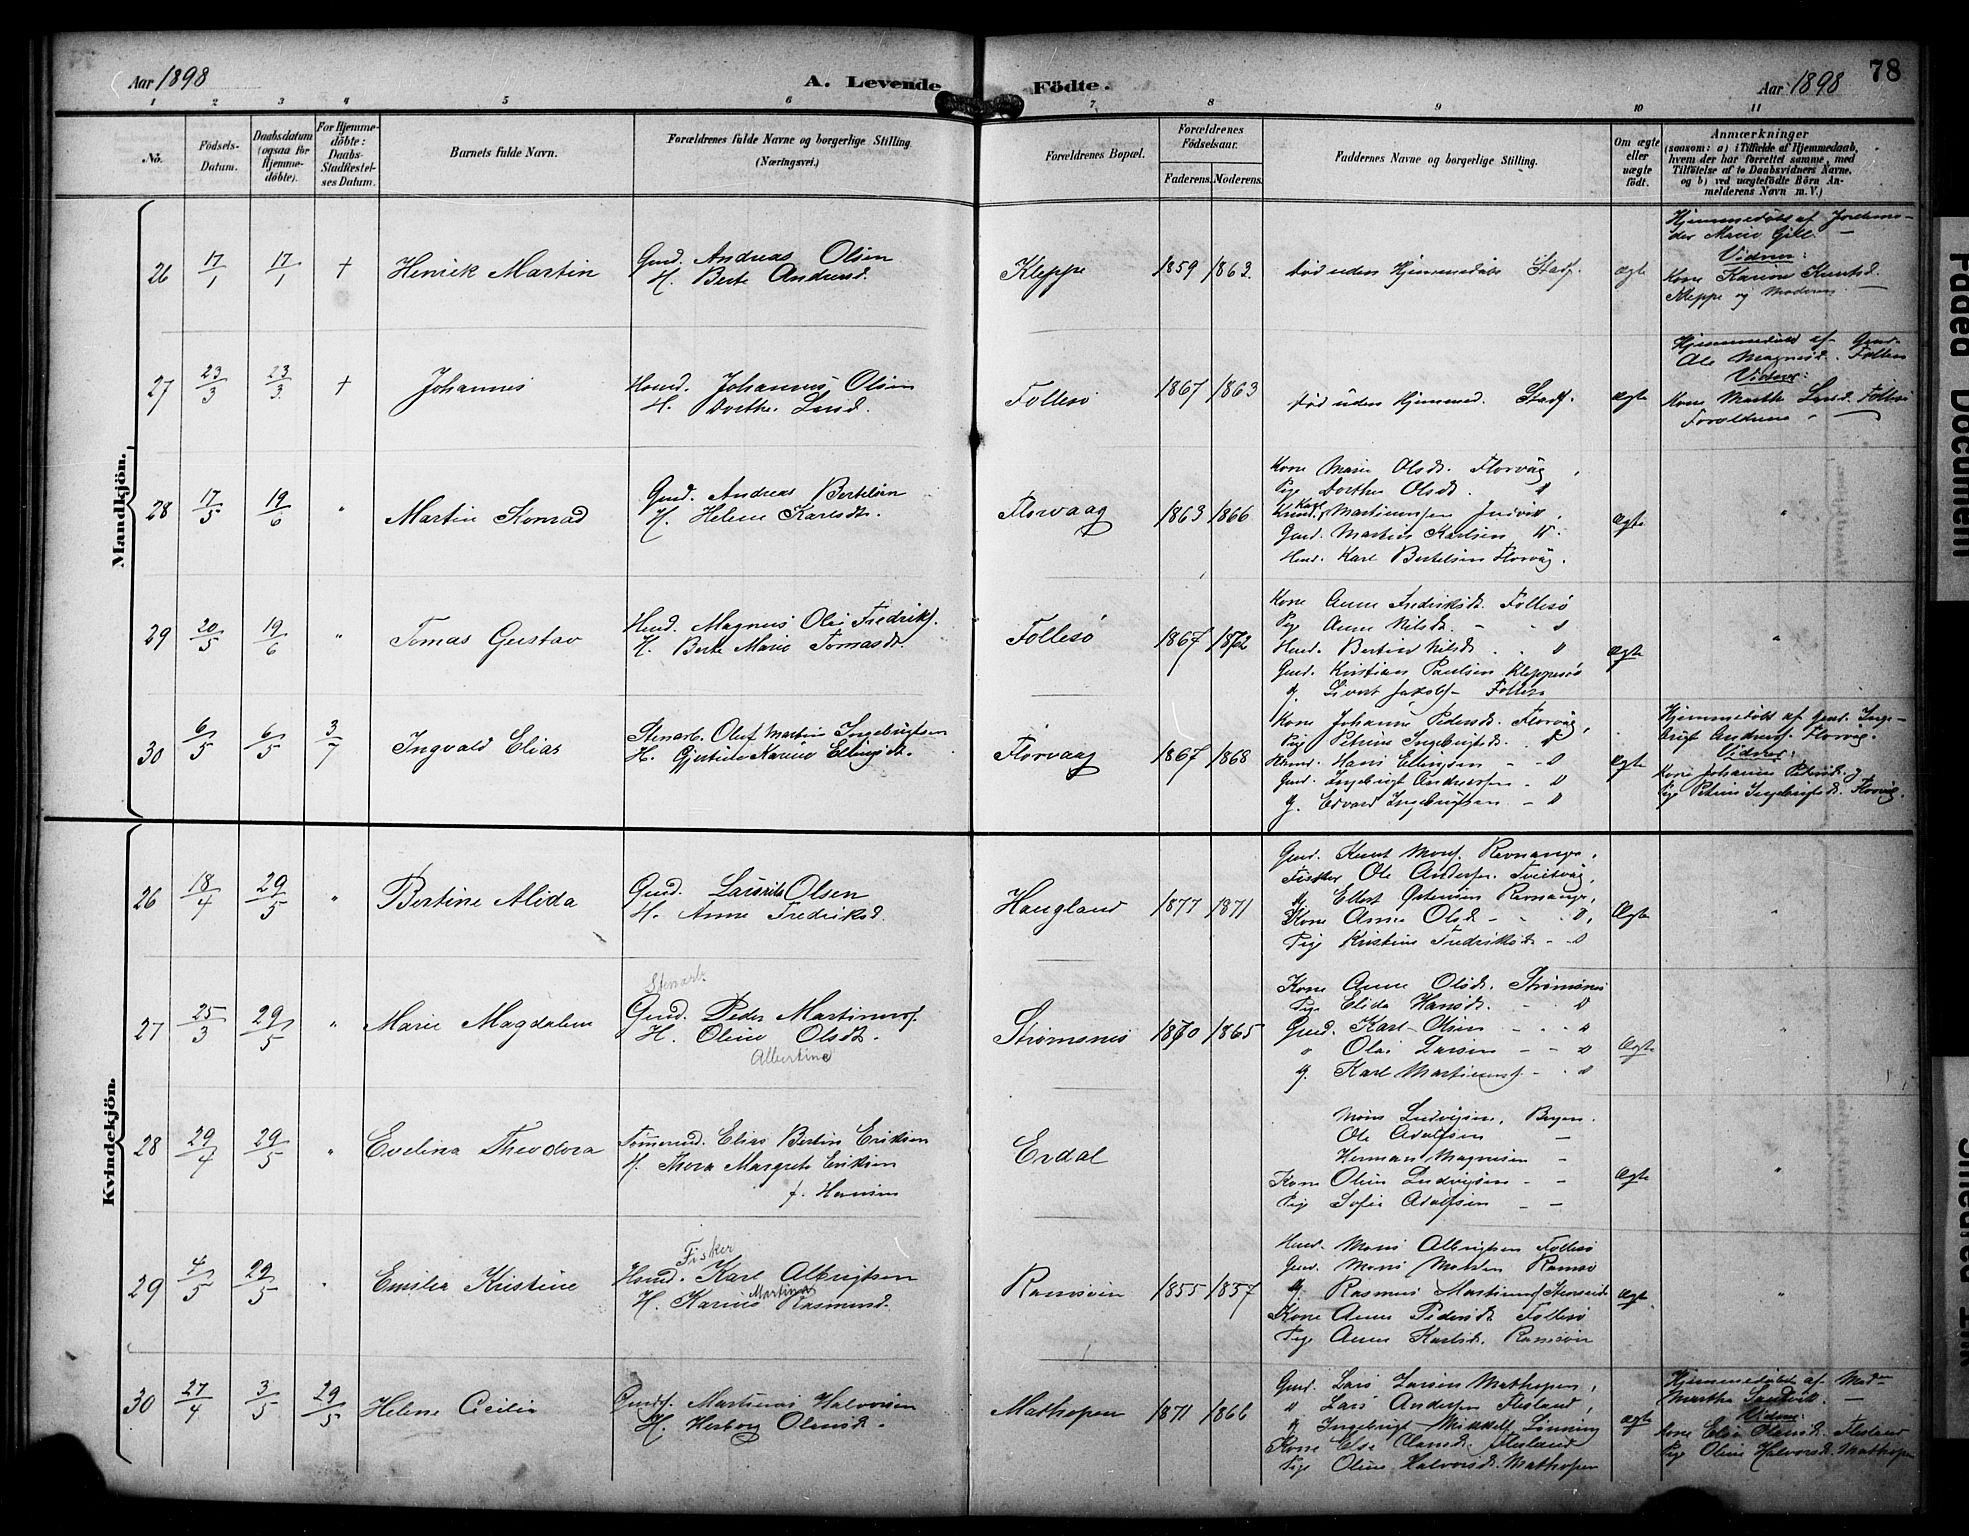 Aar 1898
A. Levende Födte.
Aar 1898
78
1 2 3 4 5 6 7 8 9 10 11
No.
Födsels-
Datum.
Daabsdatum
(ogsaa for
Hjemme-
döbte).
For Hjemme-
döbte:
Daabs-
Stadfæstel-
ses Datum.
Barnets fulde Navn.
Forældrenes fulde Navne og borgerlige Stilling
(Næringsvei.)
Forældrenes Bopæl.
Forældrenes
Födselsaar.
Faderens. Moderens.
Faddernes Navne og borgerlige Stilling.
Om ægte
eller
uægte
födt.
Anmærkninger
(saasom: a) i Tilfælde af Hjemmedaab,
hvem der har forrettet samme, med
Tilföielse af to Daabsvidners Navne,
og b) ved uægtefödte Börn An-
melderens Navn m. V.)
Mandkjön.
26 17/1 17/1 † Henrik Martin
Gmd. Andreas Olsen
H. Berte Andersd.
Kleppe 1859 1863.
død uden Hjemmedøbs Stadf.
ægte
Hjemmedøbt af Jordemo-
der Marie Gjil. —
Vidner:
Kone Karine Knutsd.
Kleppe og Moderen —
27 23/3 23/3 † Johannes
Husmd. Johannes Olsen
H. Dorthe Larsd.
Follesø 1867 1863
død uden Hjemmed. Stadf.
ægte
Hjemmedøbt af Gmd.
Ole Magnesd. Follesø
Vidner:
Kone Marthe Larsd. Follesø
Forældrene —
28 17/5 19/6 " Martin Konrad
Gmd. Andreas Bertelsen
H. Helene Karlsdt.
Florvaag 1863 1866
Kone Marie Olsdt. Florvåg,
Pige Dorthea Olsdt. "
Karl Martinussen
Gmd. Martin Karlsen "
Husmd. Karl Bertelsen Florvåg.
ægte "
29 20/5 19/6 " Tomas Gustav
Husmd. Magnus Olai Fredriks.
H. Berte Marie Tomasdt.
Follesø 1867 1872
Kone Anne Fredriksdt. Follesø
Pige Anne Nilsdt. - - "
Husmd. Bertin Nilsdt. - "
Gmd. Kristian Paulsen Kleppesø
g. Sivert Jakobs. Follesø
ægte "
30 6/5 6/5 3/7 Ingvald Elias
Stenarb. Oluf Martin Ingebrigtsen
H. Gjertine Karine Ellingsdt.
Florvaag 1867 1868
Kone Johanne Pedersdt. Florvåg,
Pige Petrine Ingebrigtsdt. - "
Husmd. Hans Ellingsen - - "
Gmd. Ingebrigt Anderssen - "
g. Edvard Ingebrigtsen - "
ægte
Hjemmedøbt af Gmd. Inge-
brigt Anders. Florvåg.
Vidner:
Kone Johanne Pedersdt. og
Pige Petrine Ingebrigtsdt. Florvåg.
Kvindekjön.
26 18/4 29/5 " Bertine Alida
Gmd. Lauritz Olsen
H. Anne Fredriksd.
Haugland 1877 1871
Gmd. Knut Mons. Ravnanger,
Fisker Ole Anders. Tveitvåg,
g. Ellert Ravnanger,
Kone Anna Olsdt. - - ",
Pige Kristine Fredriksdt. - - "
Ægte "
27 25/3 29/5 " Marie Magdalene
Stenarb.
Gmd. Peder Martinus.
H. Oline Olsdt.
Albertine
Strømsnes 1870 1865
Kone Anne Olsdt. Strømsnes
Pige Elida Hansdt. - "
Gmd. Karl Olsen - - "
" Olai Larsen - - "
g. Karl Martinus. - - "
Ægte "
28 29/4 29/5 " Evelina Theodora
Tømmermd. Elias Bertin Eriksen
H. Thora Margrete Eriksen
f. Hansen
Erdal
Mons Ludvigsen, Bergen.
Ole Adolfsen —
Herman Magnesen —
Kone Oline Ludvigsen - —
Pige Sofie Adolfsen - —
Ægte "
29 4/5 29/5 " Emilia Kristine
Fisker
Husmd. Karl Albrigtsen
Martina
H. Karine Rasmusd.
Ramsøen 1855 1857
Husmd. Mons Albrigtsen Follesø
Gmd. Mons Monsen Ramsø
g. Rasmus Martinus.
Kone Anne Pedersdt. Follesø
Pige Anne Karlsdt. Ramsøen
ægte "
30 27/4 3/5 29/5 Helene Cecilie
Gmd. Martinus Halvorsen
H. Herborg Olsensd.
Mathopen 1871 1866
Gmd. Lars Larsen Mathopen,
" Lars Andersen Flesland,
g. Ingebrigt Mikkels. Lønning
Kone Else Olsensd. Flesland
Pige Oline Halvorsdt. Mathopen
ægte
Hjemmedøbt af Mad.
Martha Sandvik. —
Vidner:
Kone Else Olsensd. Flesland
Pige Oline Halvorsdt. Mathopen
Faded Document
Smeared Ink